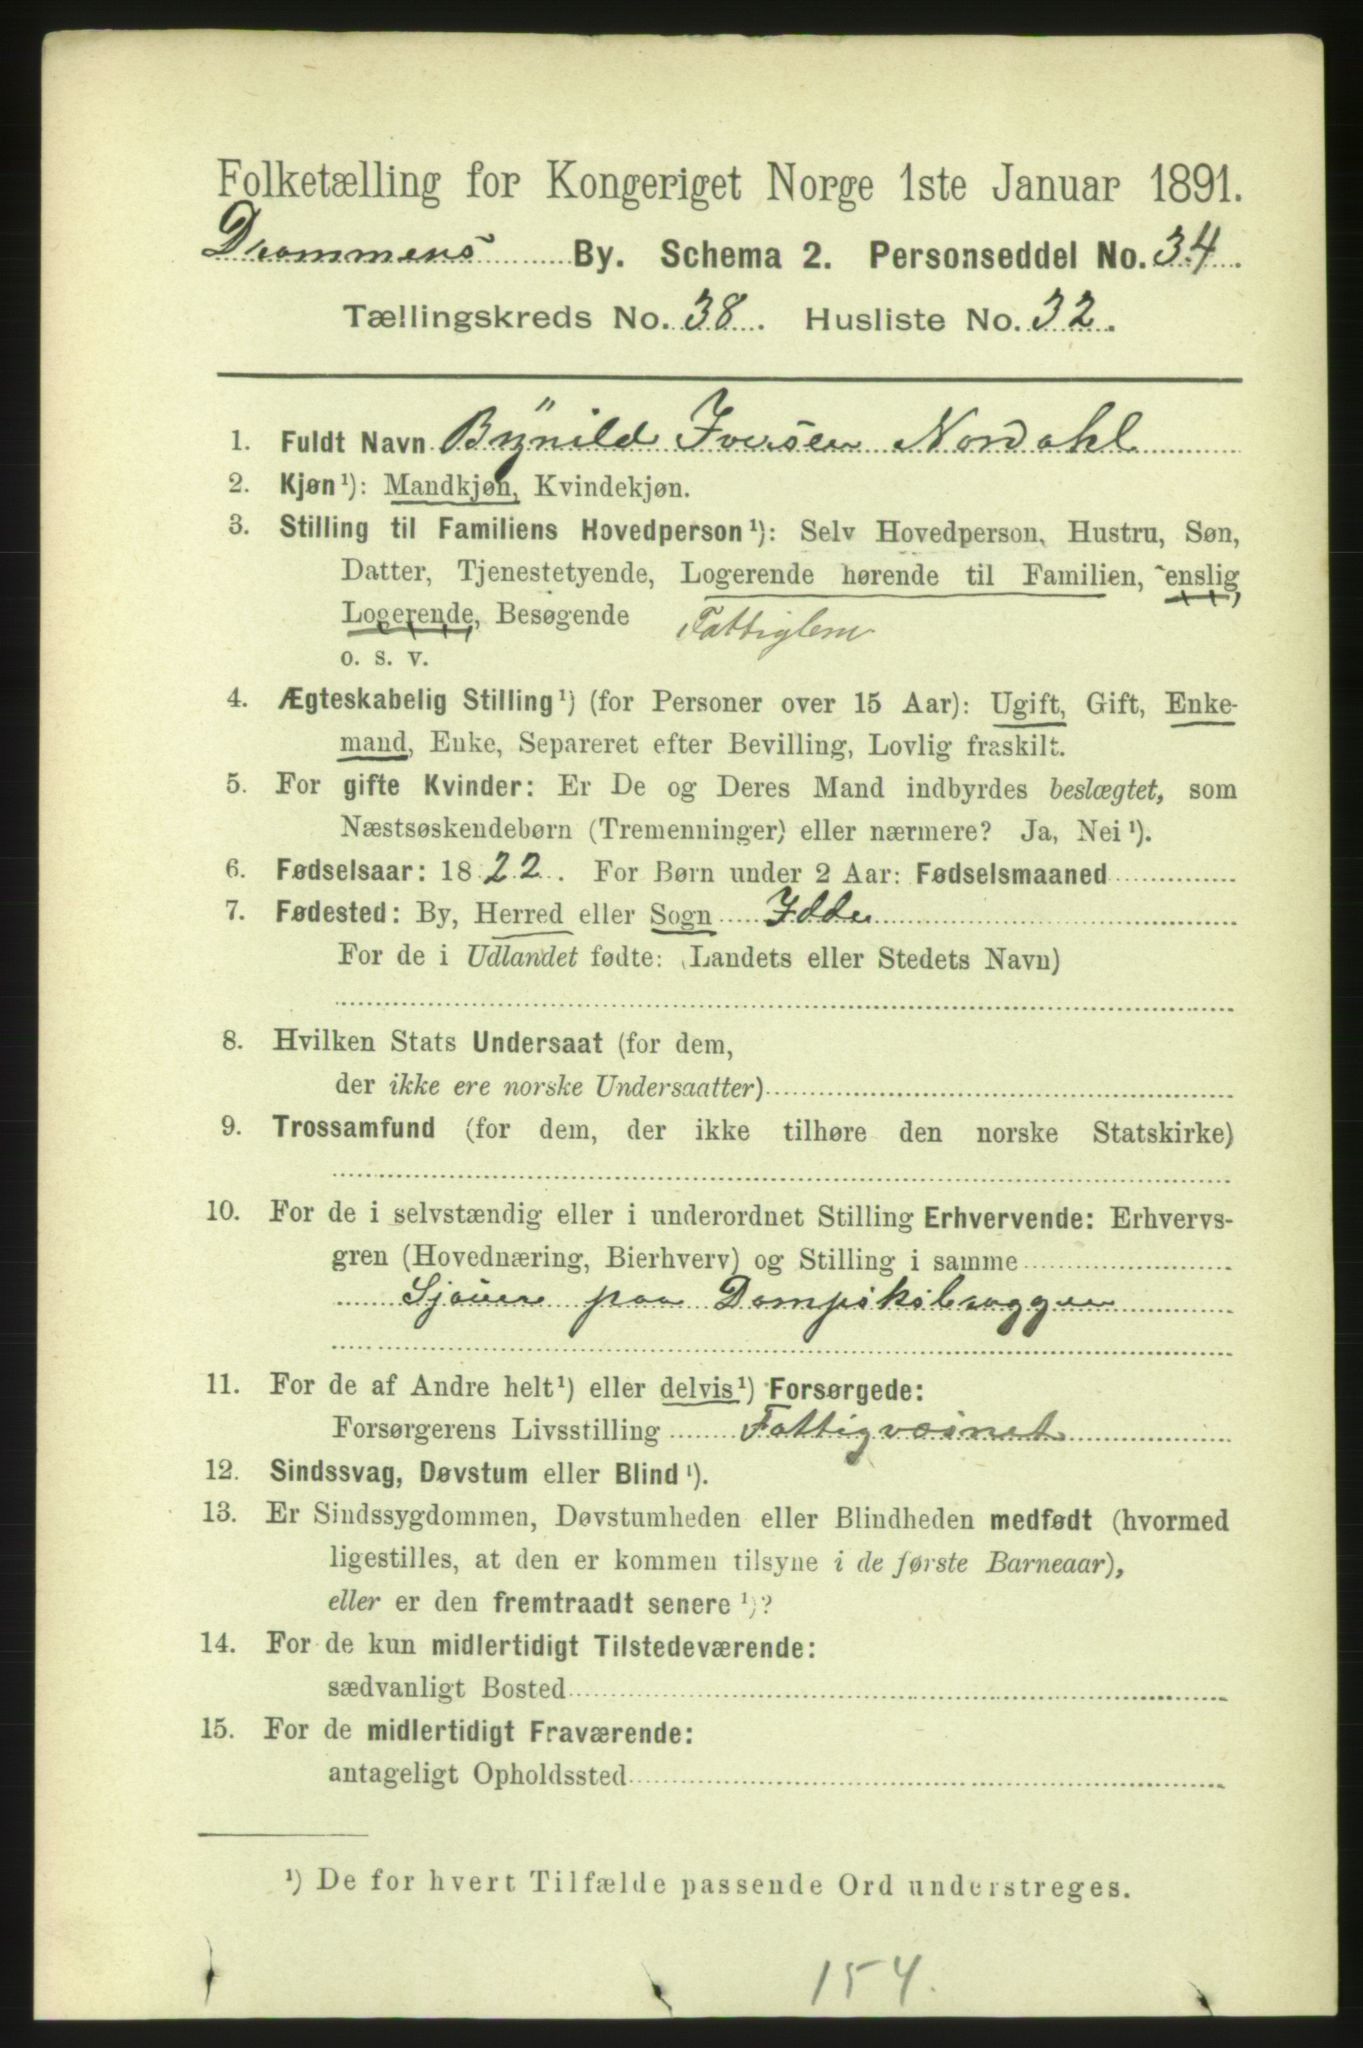 Folketælling for Kongeriget Norge 1ste Januar 1891.
Drammens By. Schema 2. Personseddel No. 34.
Tællingskreds No. 38. Husliste No. 32.
1. Fuldt Navn Bÿnild Iversen Nordahl
2. Kjøn¹): Mandkjøn, Kvindekjøn.
3. Stilling til Familiens Hovedperson¹): Selv Hovedperson, Hustru, Søn,
Datter, Tjenestetyende, Logerende hørende til Familien, enslig
Logerende, Besøgende Fattiglem
o. s. v.
4. Ægteskabelig Stilling¹) (for Personer over 15 Aar): Ugift, Gift, Enke-
mand, Enke, Separeret efter Bevilling, Lovlig fraskilt.
5. For gifte Kvinder: Er De og Deres Mand indbyrdes beslægtet, som
Næstsøskendebørn (Tremenninger) eller nærmere? Ja, Nei¹).
6. Fødselsaar: 1822. For Børn under 2 Aar: Fødselsmaaned
7. Fødested: By, Herred eller Sogn Idde
For de i Udlandet fødte: (Landets eller Stedets Navn)
8. Hvilken Stats Undersaat (for dem,
der ikke ere norske Undersaatter)
9. Trossamfund (for dem, der ikke tilhøre den norske Statskirke)
10. For de i selvstændig eller i underordnet Stilling Erhvervende: Erhvervs-
gren (Hovednæring, Bierhverv) og Stilling i samme
Sjouer paa Dampskbryggen
11. For de af Andre helt¹) eller delvis¹) Forsørgede:
Forsørgerens Livsstilling Fattigvæsnet
12. Sindssvag, Døvstum eller Blind¹).
13. Er Sindssygdommen, Døvstumheden eller Blindheden medfødt (hvormed
ligestilles, at den er kommen tilsyne i de første Barneaar),
eller er den fremtraadt senere¹)?
14. For de kun midlertidigt Tilstedeværende:
sædvanligt Bosted
15. For de midlertidigt Fraværende:
antageligt Opholdssted
¹) De for hvert Tilfælde passende Ord understreges.
154.